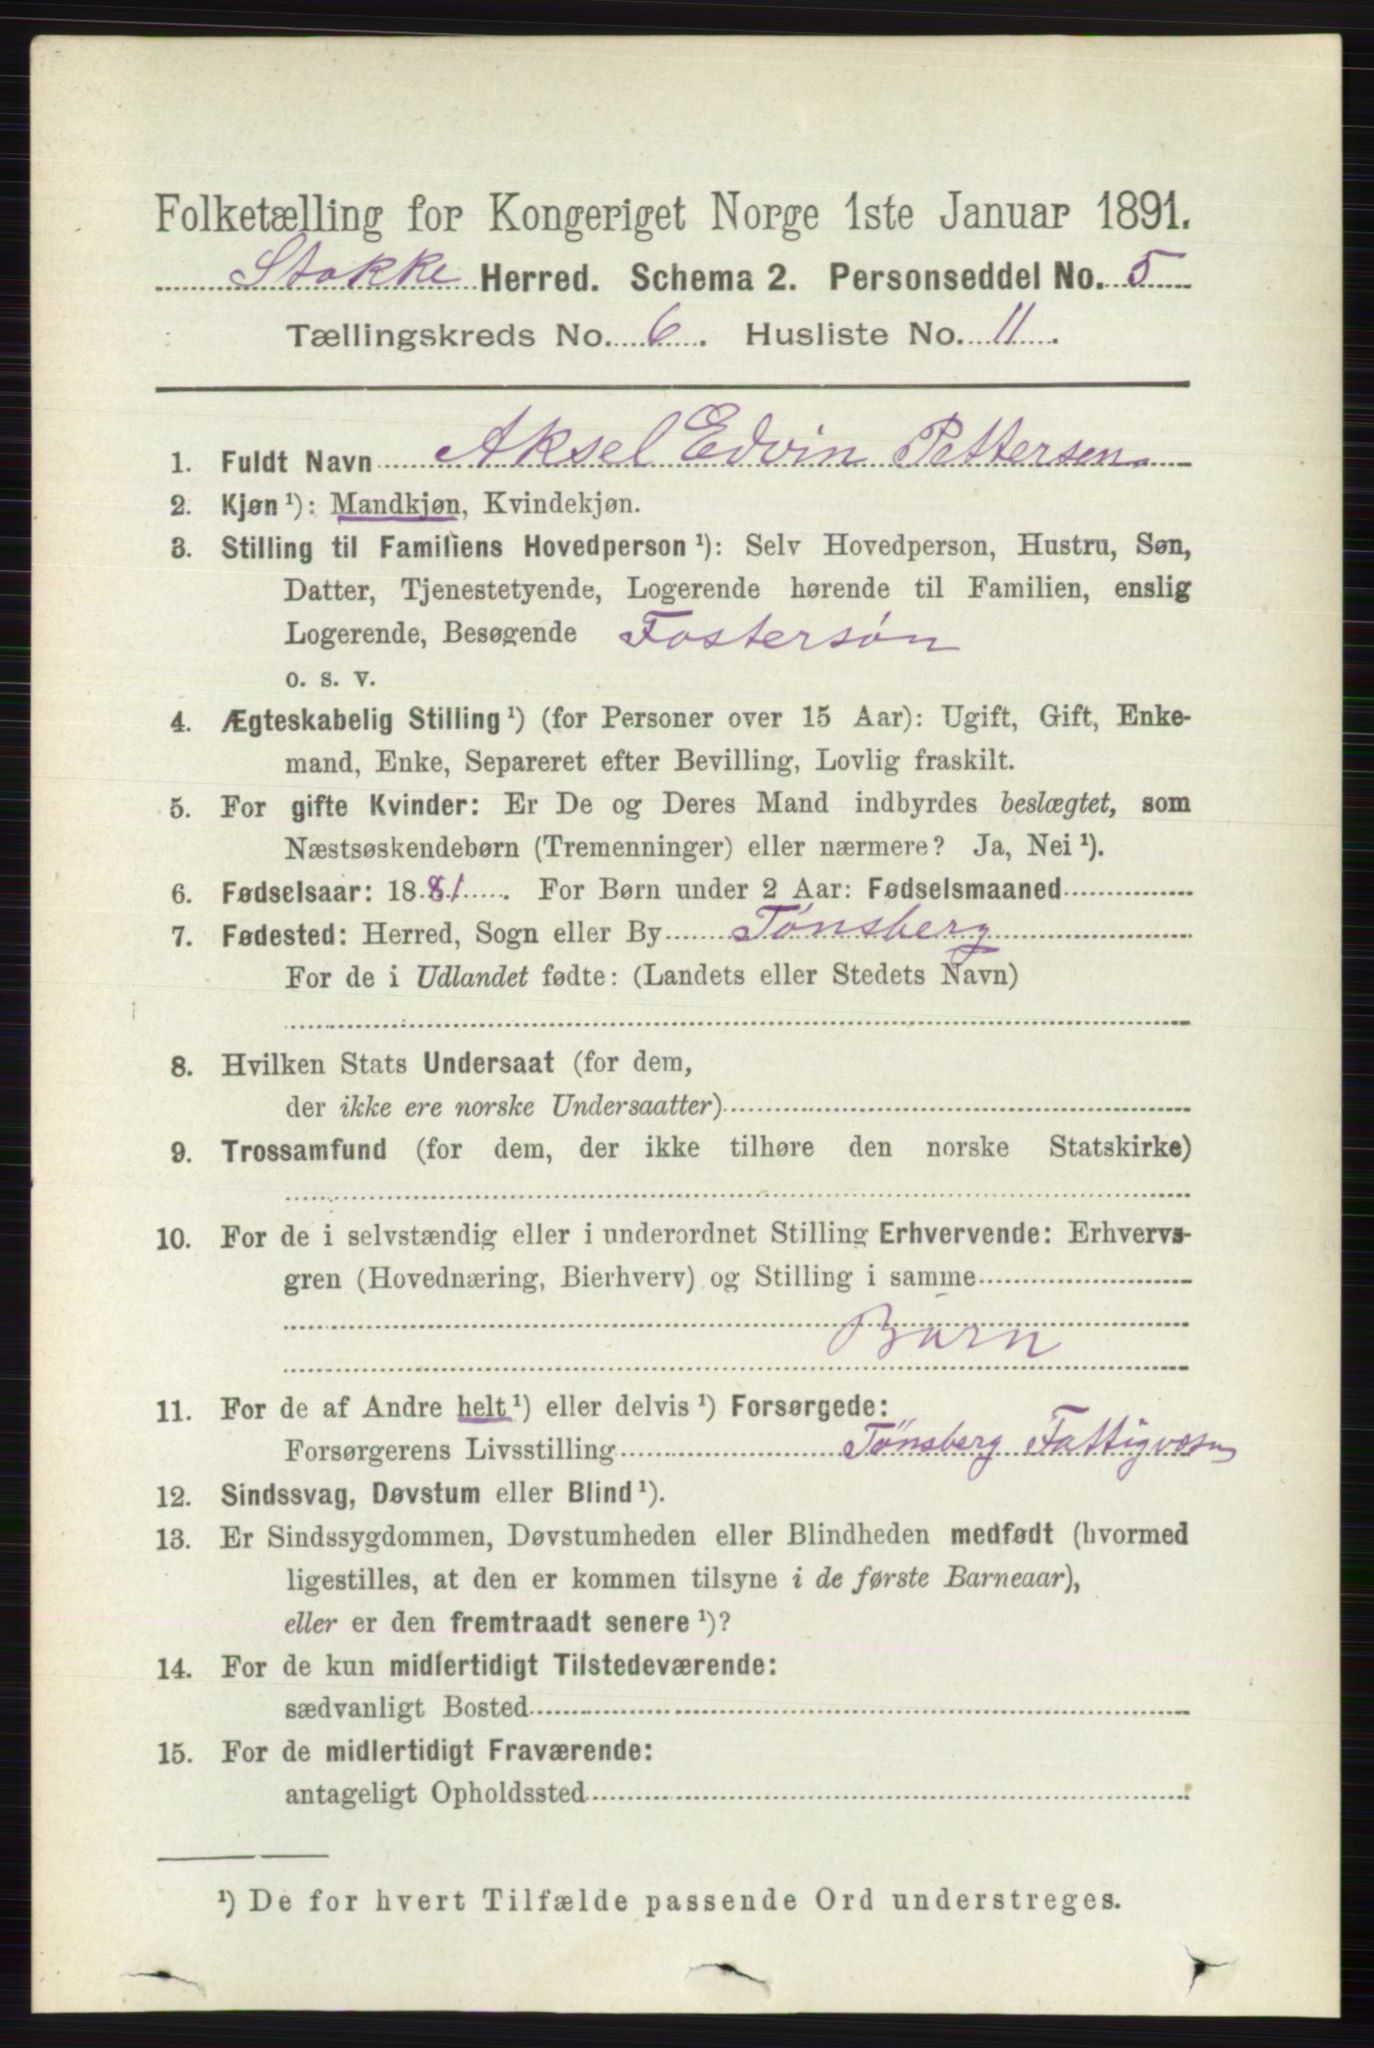 Folketælling for Kongeriget Norge 1ste Januar 1891.
Stokke Herred. Schema 2. Personseddel No. 5
Tællingskreds No. 6. Husliste No. 11.
1. Fuldt Navn Aksel Edvin Pettersen
2. Kjøn ¹): Mandkjøn, Kvindekjøn.
3. Stilling til Familiens Hovedperson ¹): Selv Hovedperson, Hustru, Søn,
Datter, Tjenestetyende, Logerende hørende til Familien, enslig
Logerende, Besøgende Fostersøn
o. s. v.
4. Ægteskabelig Stilling ¹) (for Personer over 15 Aar): Ugift, Gift, Enke-
mand, Enke, Separeret efter Bevilling, Lovlig fraskilt.
5. For gifte Kvinder: Er De og Deres Mand indbyrdes beslægtet, som
Næstsøskendebørn (Tremenninger) eller nærmere? Ja, Nei ¹).
6. Fødselsaar: 1881. For Børn under 2 Aar: Fødselsmaaned
7. Fødested: Herred, Sogn eller By Tønsberg
For de i Udlandet fødte: (Landets eller Stedets Navn)
8. Hvilken Stats Undersaat (for dem,
der ikke ere norske Undersaatter)
9. Trossamfund (for dem, der ikke tilhøre den norske Statskirke)
10. For de i selvstændig eller i underordnet Stilling Erhvervende: Erhvervs-
gren (Hovednæring, Bierhverv) og Stilling i samme
Barn
11. For de af Andre helt ¹) eller delvis ¹) Forsørgede:
Forsørgerens Livsstilling Tønsberg Fattigvæsn
12. Sindssvag, Døvstum eller Blind ¹).
13. Er Sindssygdommen, Døvstumheden eller Blindheden medfødt (hvormed
ligestilles, at den er kommen tilsyne i de første Barneaar),
eller er den fremtraadt senere ¹)?
14. For de kun midlertidigt Tilstedeværende:
sædvanligt Bosted
15. For de midlertidigt Fraværende:
antageligt Opholdssted
¹) De for hvert Tilfælde passende Ord understreges.